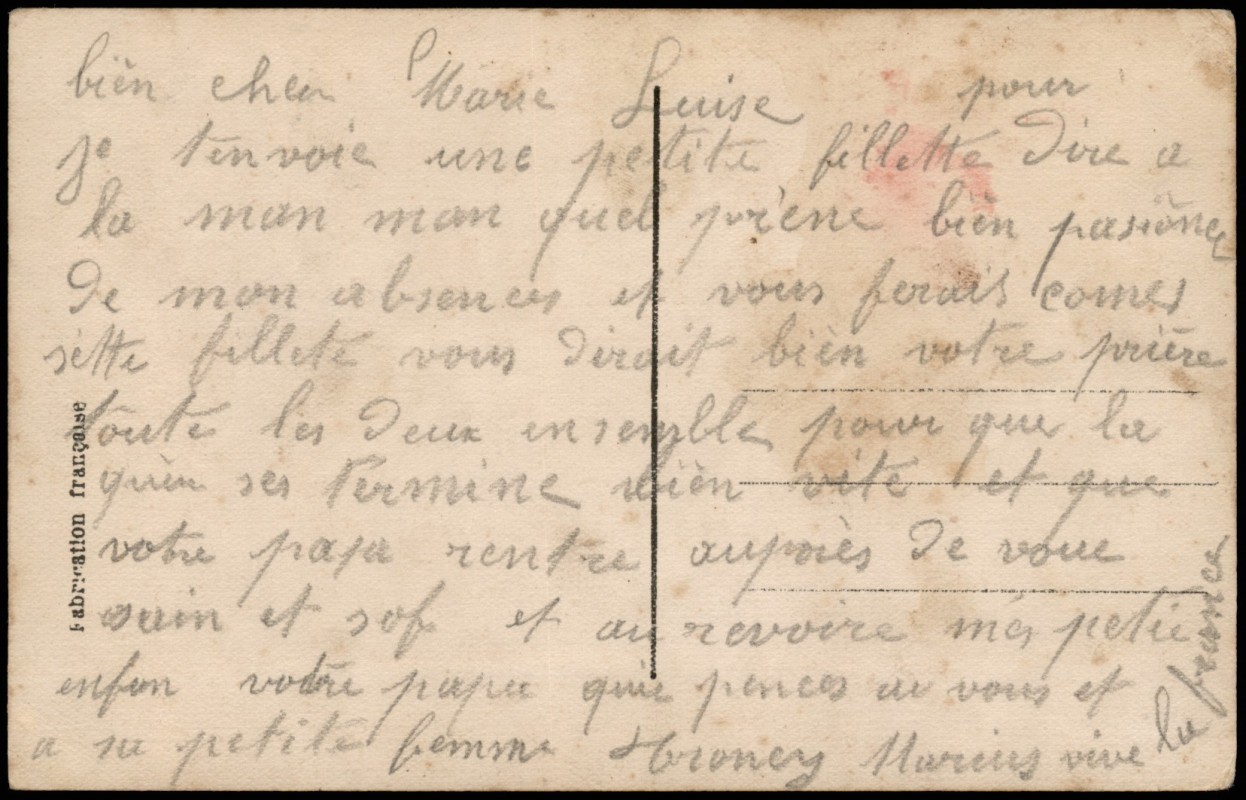 bien cher Marie Luise pour
je tenvoie une petite fillette Dire a
la man man quel priene bien pasiónes
De mon absences et vous ferais comes
sette fillete vous Dirait bien votre prière
toute les Deux ensemble pour que la
quèu ses Termine bien vite et que
votre papa rentre auprès De voue
sain et sof et au revoire més petie
enfan votre papa quie pences au vous et
a sa petite femme Marius vive
la france
Fabrication française